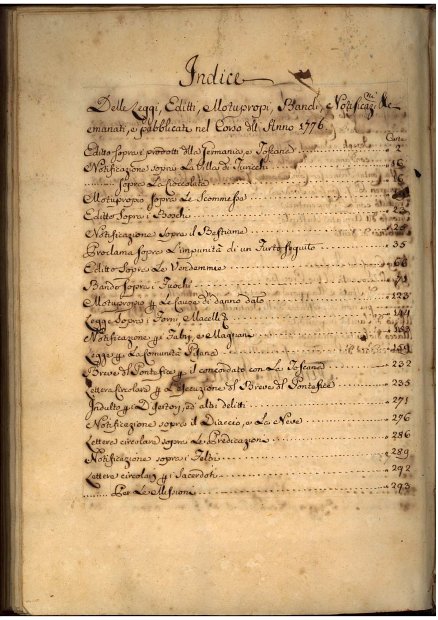 Indice
Delle Leggi, Editti, Motupropi, Bandi, Notificazni &c
emanati, e pubblicati nel Corso dell' Anno 1776.
Carte
Editto sopra i prodotti della Germania e Toscana 2
Notificazione sopra La Villa di 16
sopra La Cioccolata 18
Motuproprio sopra Le Scommesse
Editto Sopra i Boschi 23
Notificazione Sopra il Bestiame 25
Proclama sopra L'impunità di un Furto seguito 35
Editto Sopra Le Vendemmie 68
Bando Sopra i Fuochi 71
Motuproprio p Le Cause di danno dato 123
Legge Sopra i Forni, Macelli & 144
Notificazione p i Fabri, e Magnani 153
Legge p La Comunità Pisana 154
Breve del Pontefice p il concordato con La Toscana 232
Lettera Circolare p L'esecuzione del Breve del Pontefice 235
Indulto p i Disertori, ed altri delitti 271
Notificazione sopra il Diaccio, e La Neve 276
Lettere circolari sopra Le Predicazioni 286
Notificazione sopra i 289
Lettere circolari p i Sacerdoti 292
Per Le Missioni 293